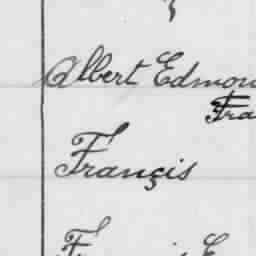 Albert Edmon
Fra
Françis
F